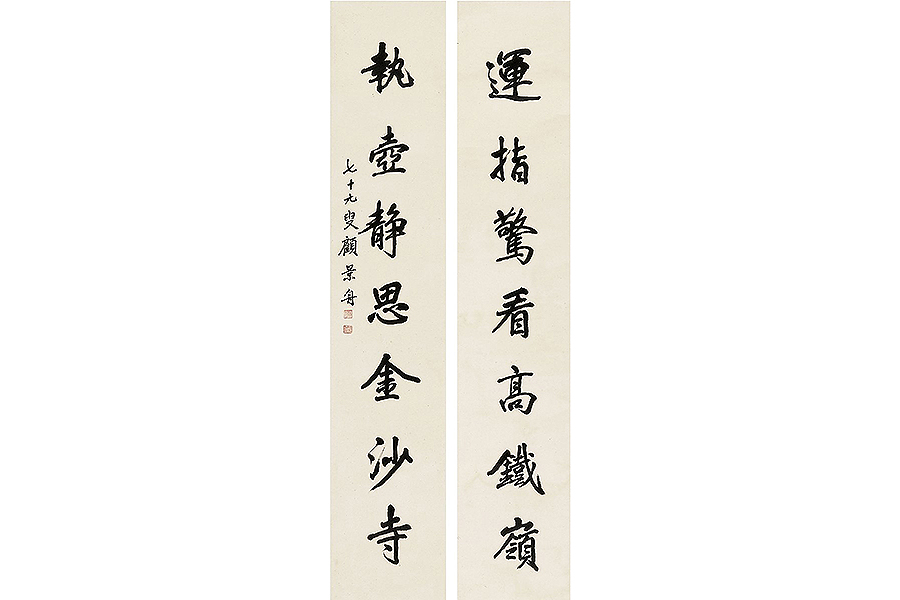 運指驚看高鐵嶺
執壺靜思金沙寺
七十九叟顧景舟